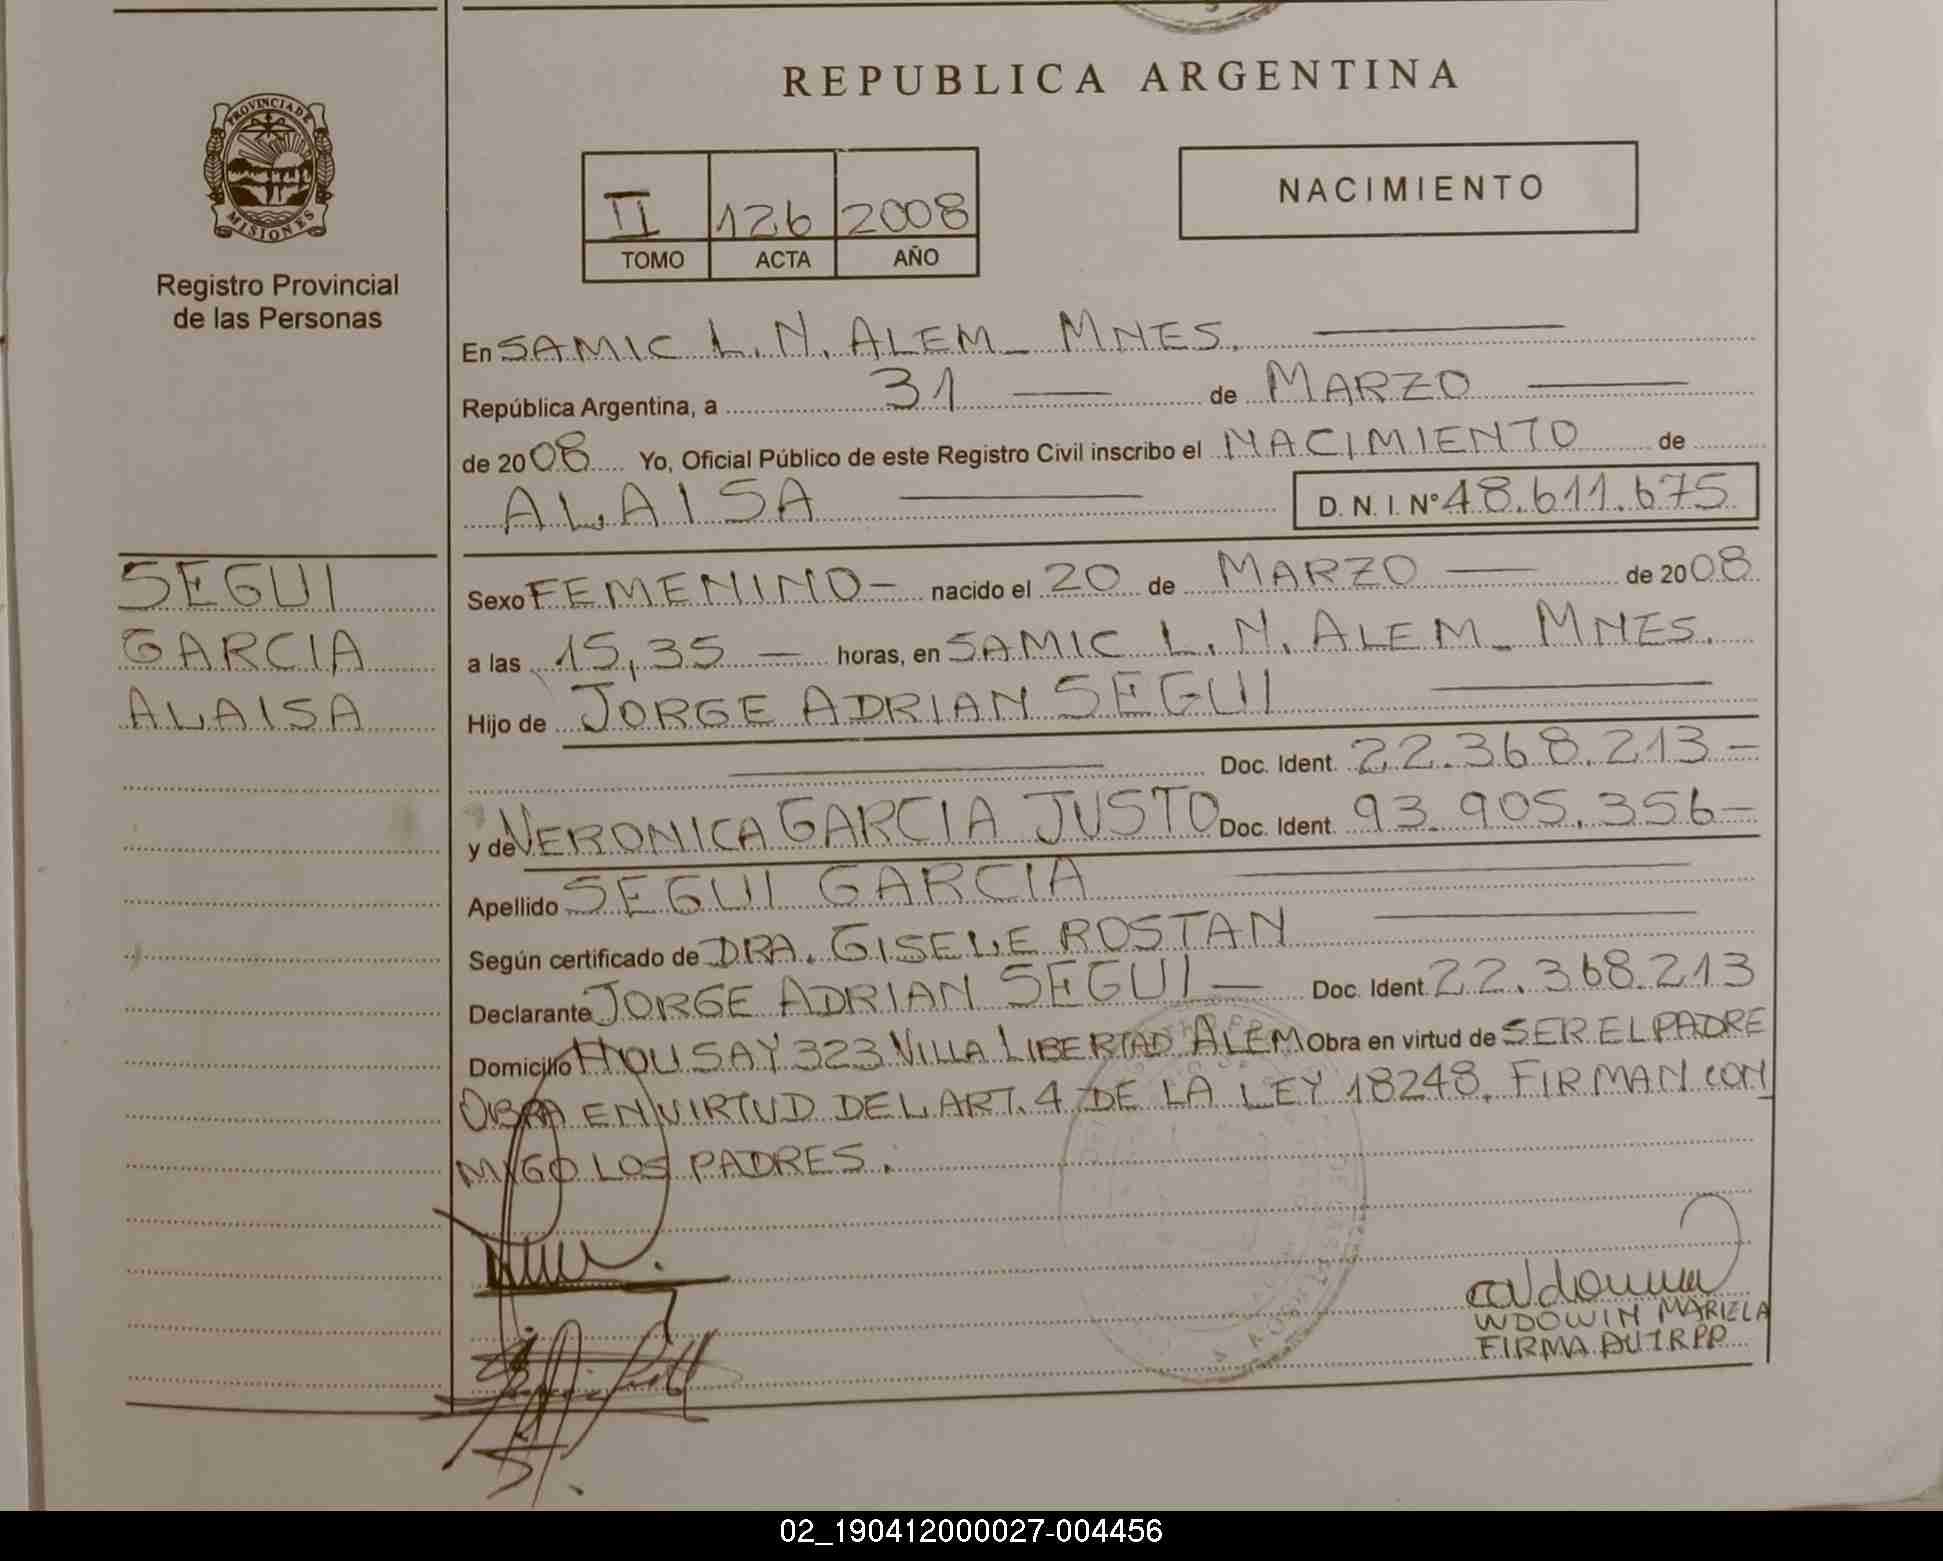 REPUBLICA ARGENTINA
PROVINCIA DE
MISIONES
Registro Provincial
de las Personas
II 126 2008
TOMO ACTA AÑO
NACIMIENTO
En SAMIC L. N. ALEM_ MNES.
República Argentina, a 31 de MARZO
de 2008 Yo, Oficial Público de este Registro Civil inscribo el NACIMIENTO de
ALAISA D. N. I. Nº 48.611.675
SEGUI
GARCIA
ALAISA
Sexo FEMENINO- nacido el 20 de MARZO de 2008
a las 15,35 horas, en SAMIC L. N. ALEM_ MNES.
Hijo de JORGE ADRIAN SEGUI
Doc. Ident. 22.368.213-
y de VERONICA GARCIA JUSTO Doc. Ident. 93.905.356-
Apellido SEGUI GARCIA
Según certificado de DRA. GISELE ROSTAN
Declarante JORGE ADRIAN SEGUI Doc. Ident. 22.368.213
Domicilio HOUSAY 323 VILLA LIBERTAD ALEM Obra en virtud de SER EL PADRE
OBRA EN VIRTUD DEL ART. 4 DE LA LEY 18248. FIRMAN CON_
MIGO LOS PADRES.
WDOWIN MARIELA
FIRMA AUT RPP
02_190412000027-004456